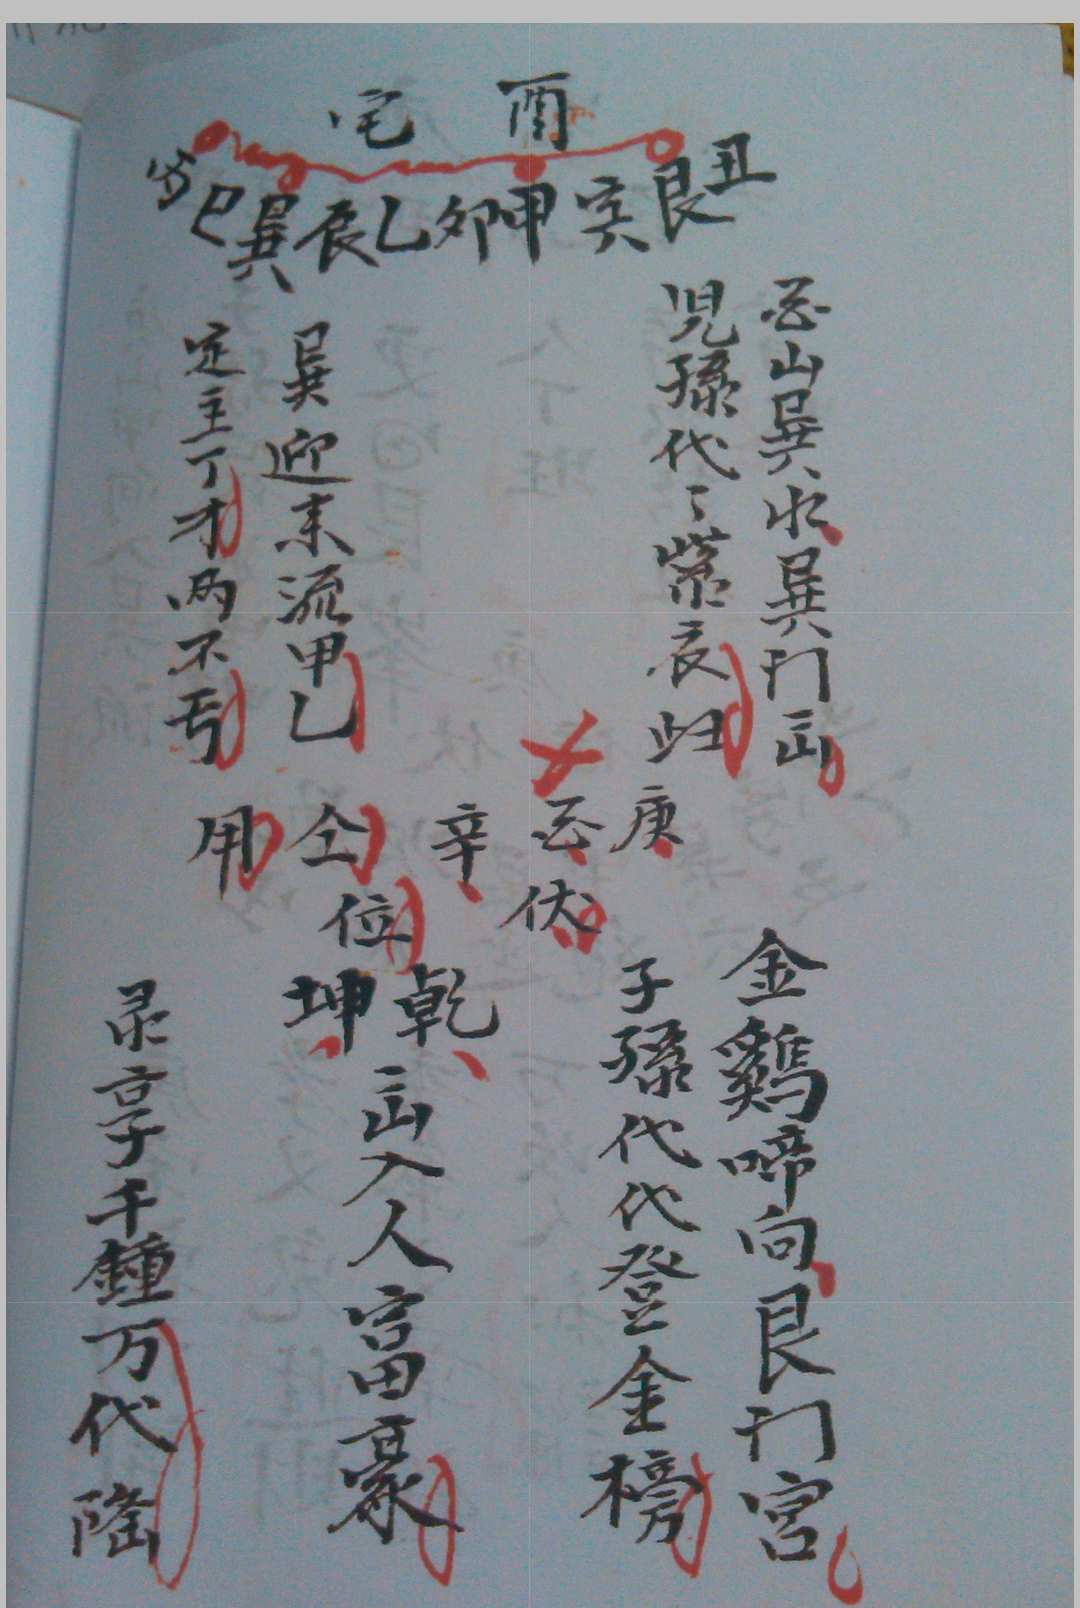 酉宅
丑艮寅甲卯乙辰巽巳丙
酉山巽水巽门出
兒孫代々紫衣归
巽迎来流甲乙
定主丁才两不亏
庚酉辛仝用
伏位
乾坤
金鷄啼向艮门宮
子孫代代登金榜
出入人富豪
录享千鍾万代隆